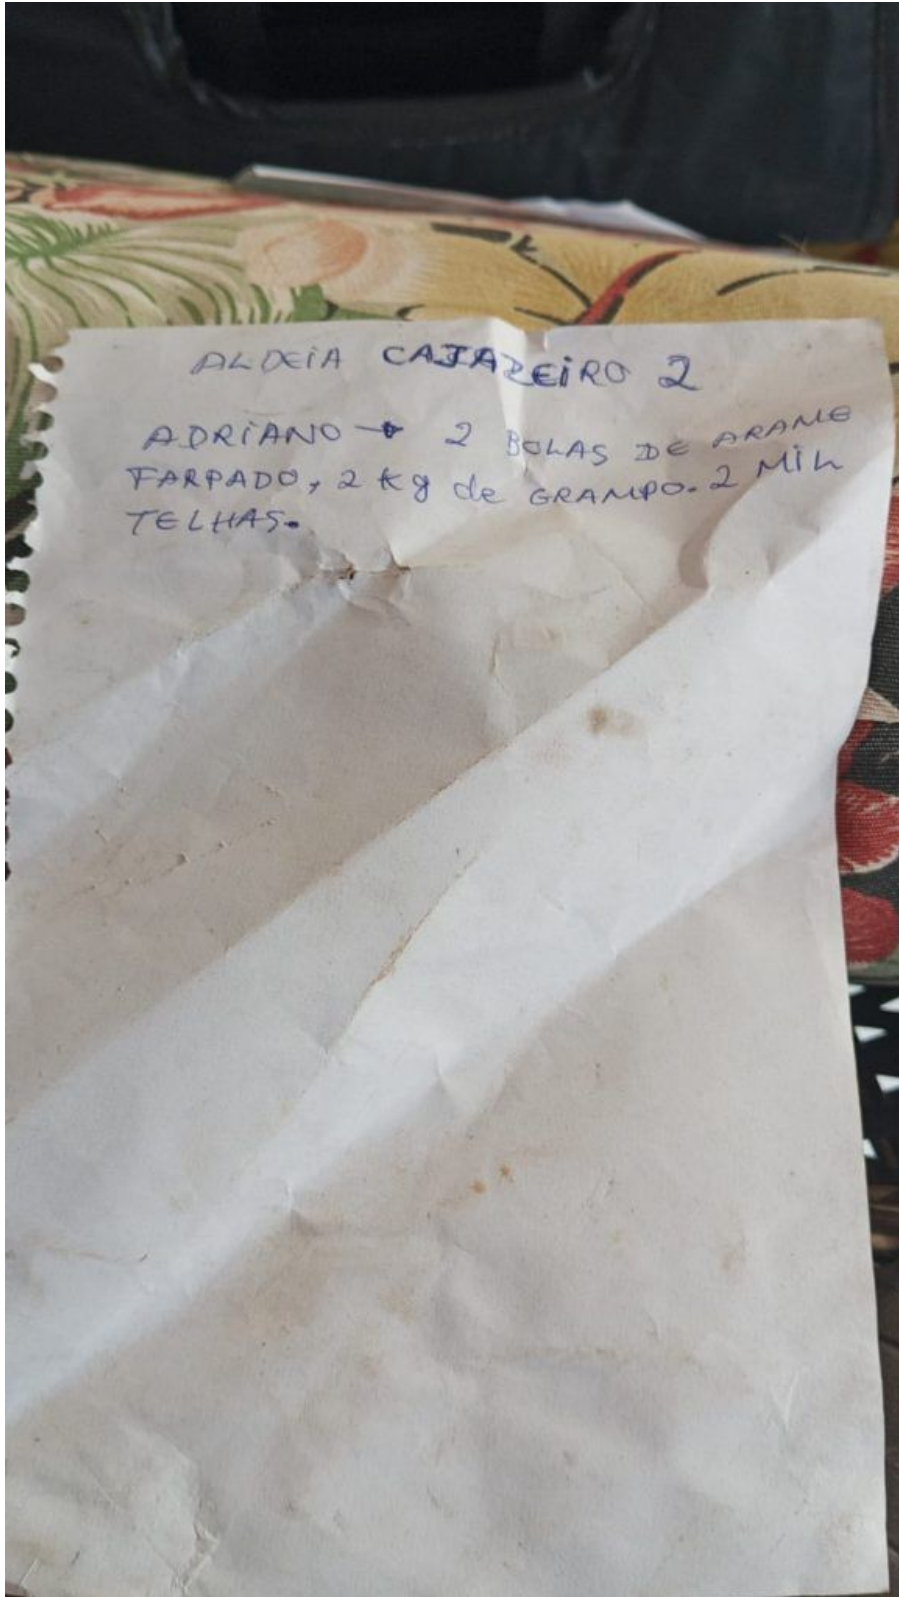 ALDEIA CAJAZEIRO 2
ADRIANO → 2 BOLAS DE ARAME
FARPADO, 2 kg de GRAMPO. 2 MIL
TELHAS.